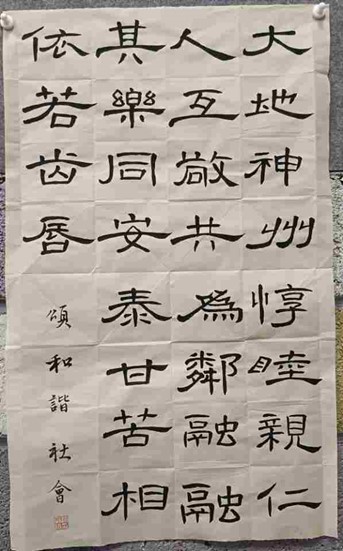 大地神州惇睦親仁
人互敬共爲鄰融融
其樂同安泰甘苦相
依若齿唇
頌和諧社會